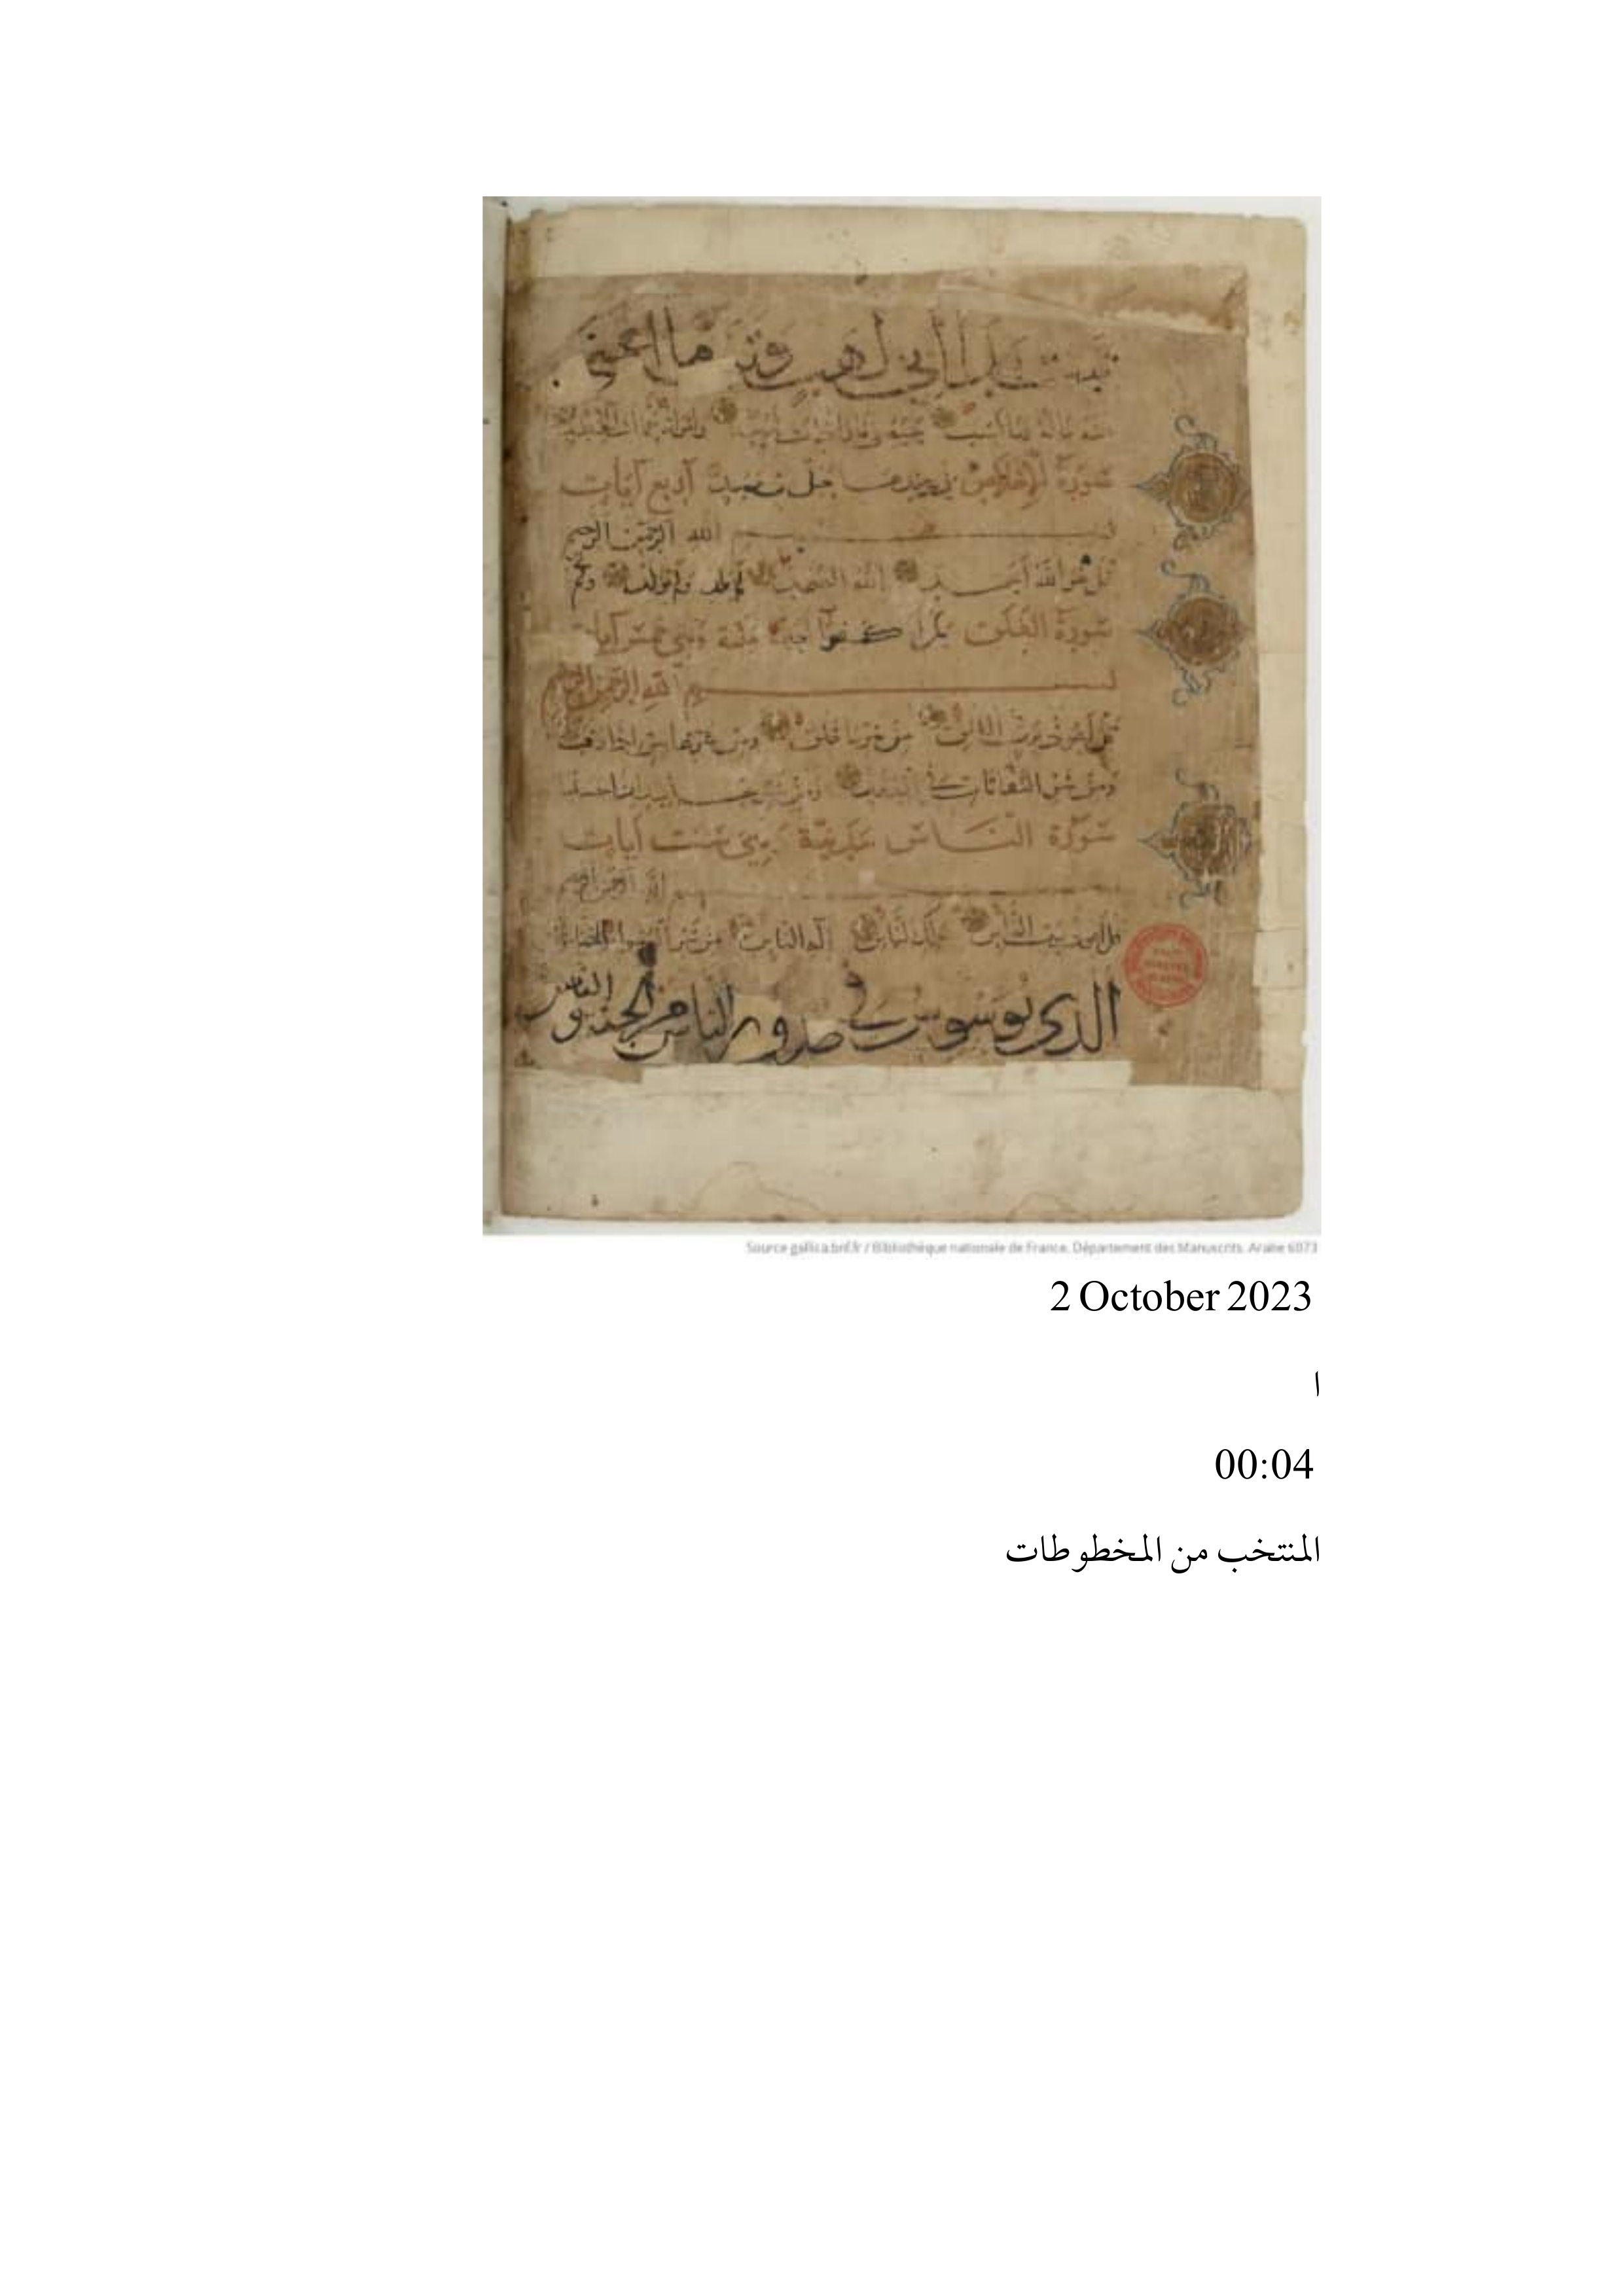 تبت يدا ابي لهب وتب ما اغنى
عنه ماله وما كسب
سورة الإخلاص أربع آيات
بسم الله الرحمن الرحيم
قل هو الله أحد الله الصمد لم يلد ولم يولد ولم
سورة الفلق يكن له كفوا أحد وهي خمس آيات
بسم الله الرحمن الرحيم
قل أعوذ برب الفلق من شر ما خلق ومن شر غاسق إذا وقب
ومن شر النفاثات في العقد ومن شر حاسد إذا حسد
سورة الناس مدنية وهي ست آيات
بسم الله الرحمن الرحيم
قل أعوذ برب الناس ملك الناس إله الناس من شر الوسواس الخناس
الذي يوسوس في صدور الناس من الجنة و الناس
Source gallica.bnf.fr / Bibliothèque nationale de France. Département des Manuscrits. Arabe 6073
2 October 2023
ا
00:04
المنتخب من المخطوطات